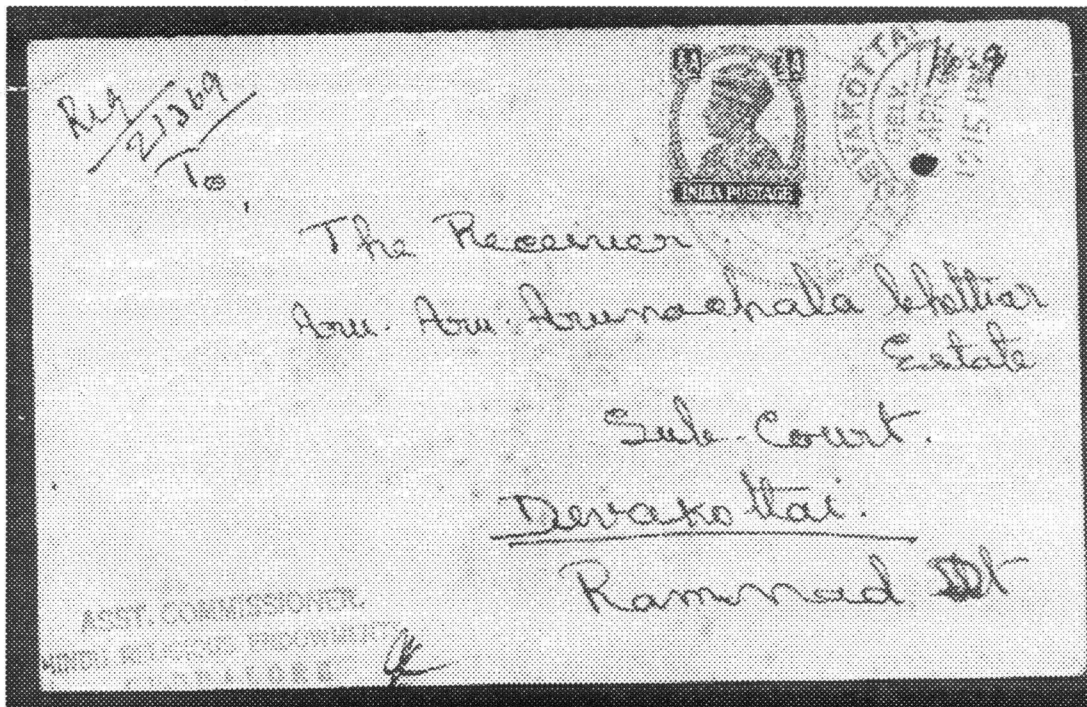 Reg
21369
To,
INDIA POSTAGE
DELY.
APR
1915
The Receiver.
Aru. Aru. Arunachala Chettiar
Estate
Sub-Court.
Devakottai.
Ramnad Dt
ASST. COMMISSIONER,
HINDU RELIGIOUS ENDOWMENT